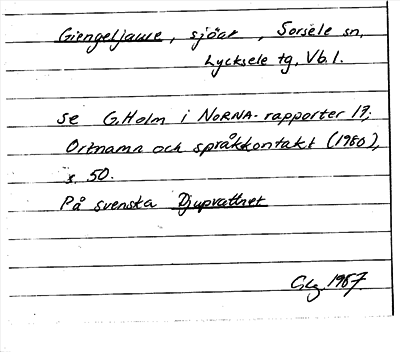 Giengeljaure, sjöar, Sorsele sn,
Lycksele tg, Vb.l.
se G. Holm i NORNA-rapporter 17:
Ortnamn och språkkontakt (1980),
s. 50.
På svenska Djupvattnet
1987.